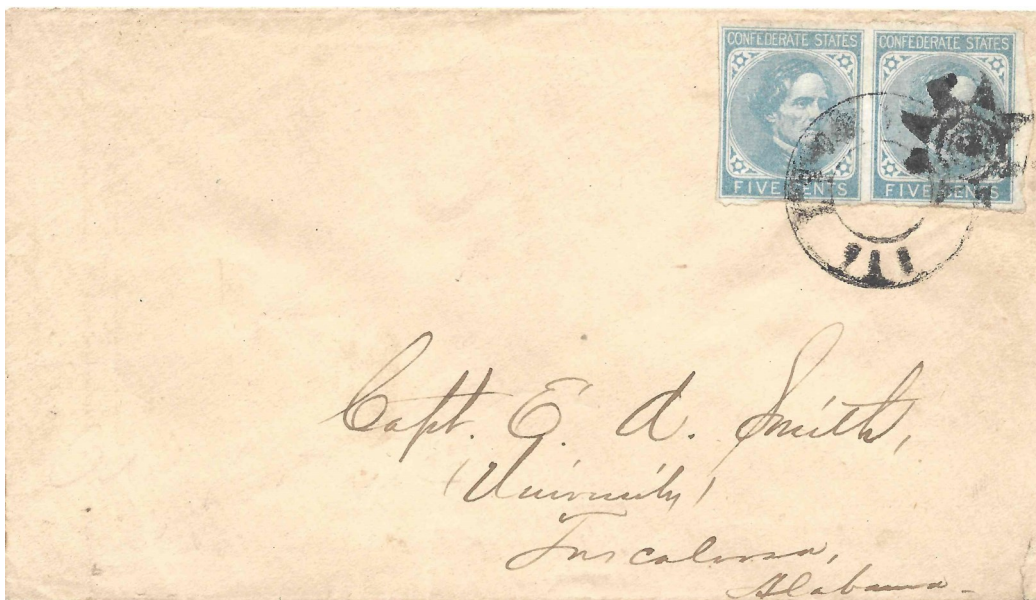 CONFEDERATE STATES CONFEDERATE STATES
FIVE CENTS FIVE CENTS
Capt. E. A. Smith,
(University)
Tuscaloosa,
Alabama.